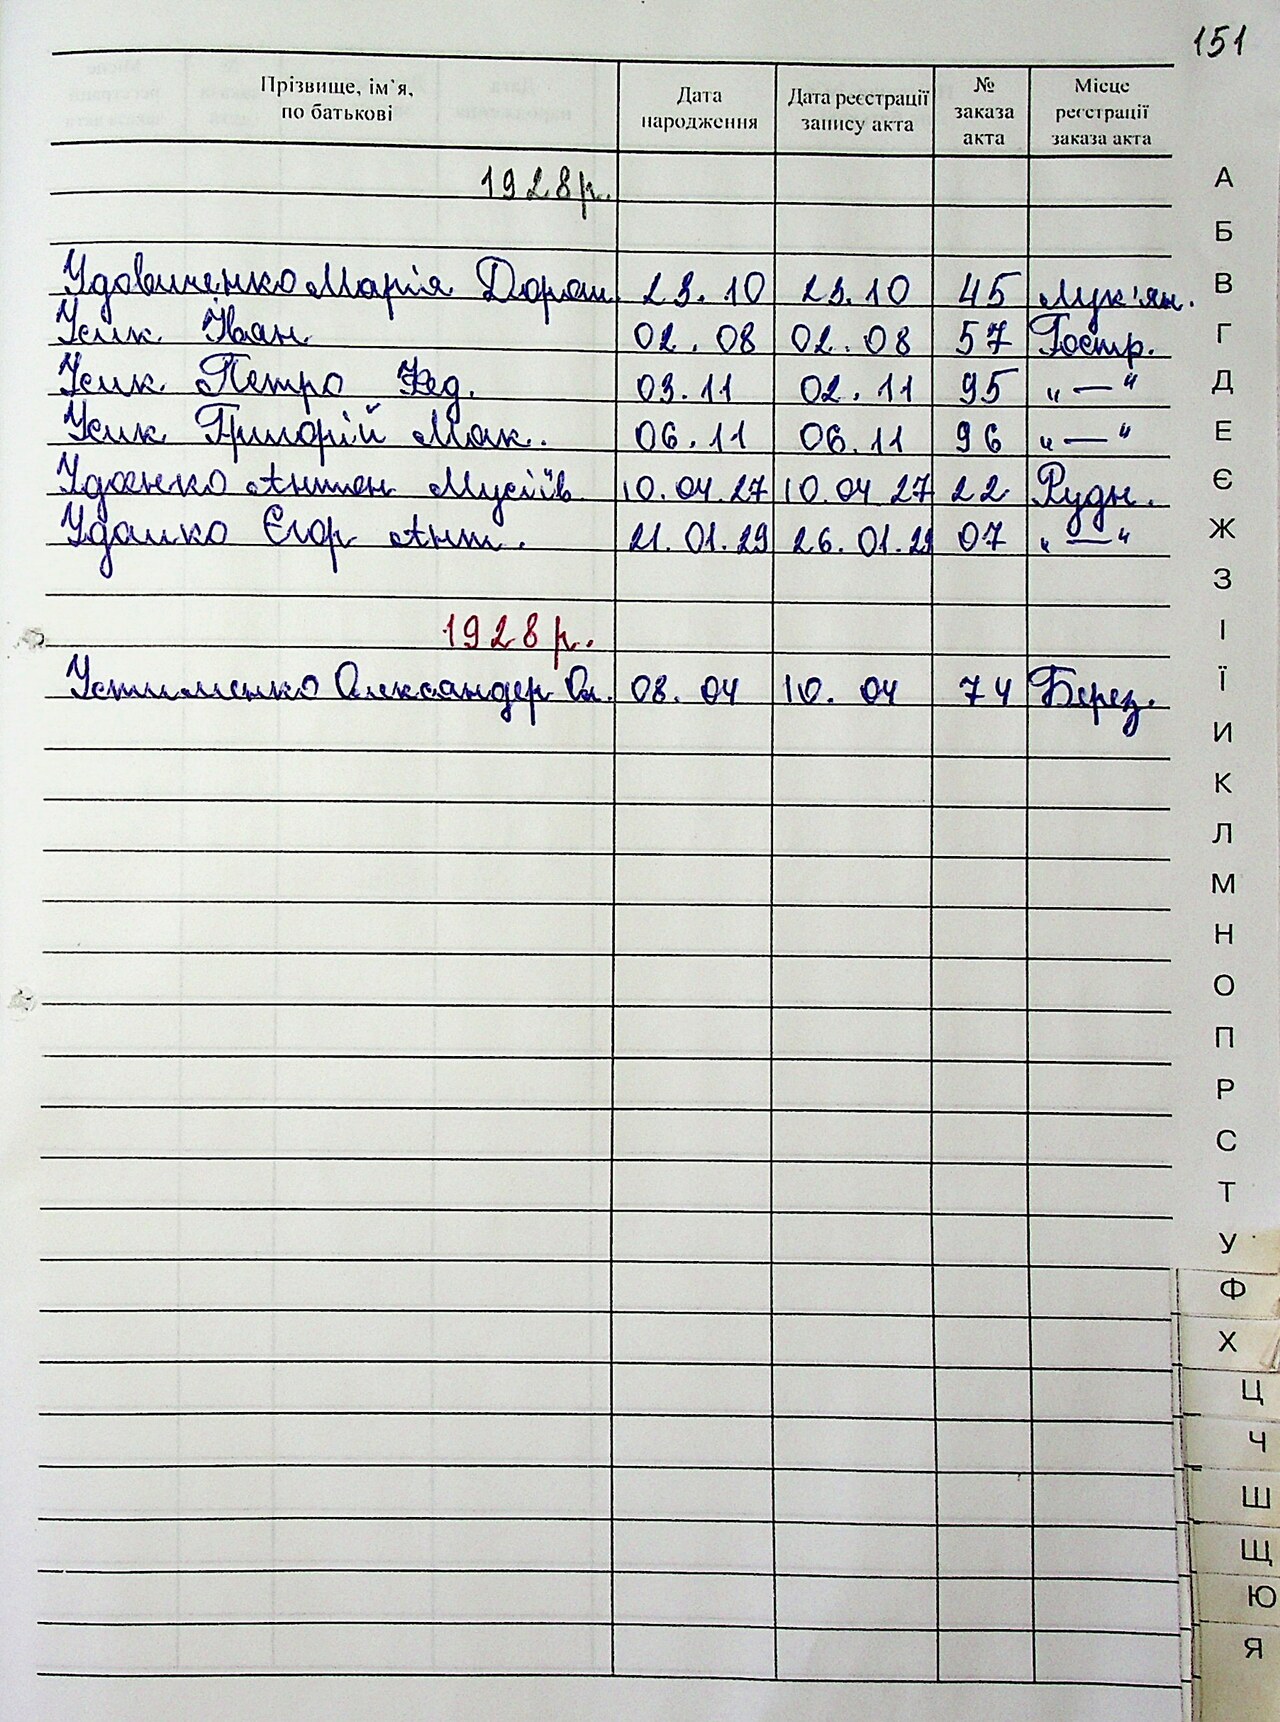 151
Прізвище, ім'я, по батькові Дата народження Дата реєстрації запису акта № заказа акта Місце реєстрації заказа акта
1928р.
Удовиченко Марія Дорош. 23.10 23.10 45 Лук'ян.
Усик Іван 02.08 02.08 57 Гостр.
Усик Петро Фед. 03.11 02.11 95 „—“
Усик Григорій Мак. 06.11 06.11 96 „—“
Удаенко Антон Мусіїв 10.04.27 10.04 27 22 Рудн.
Єгор Ант. 21.01.29 26.01.29 07 „—“
1928р.
Устименко Олександер Ол. 08.04 10.04 74 Берез.
А
Б
В
Г
Д
Е
Є
Ж
З
І
Ї
И
К
Л
М
Н
О
П
Р
С
Т
У
Ф
Х
Ц
Ч
Ш
Щ
Ю
Я